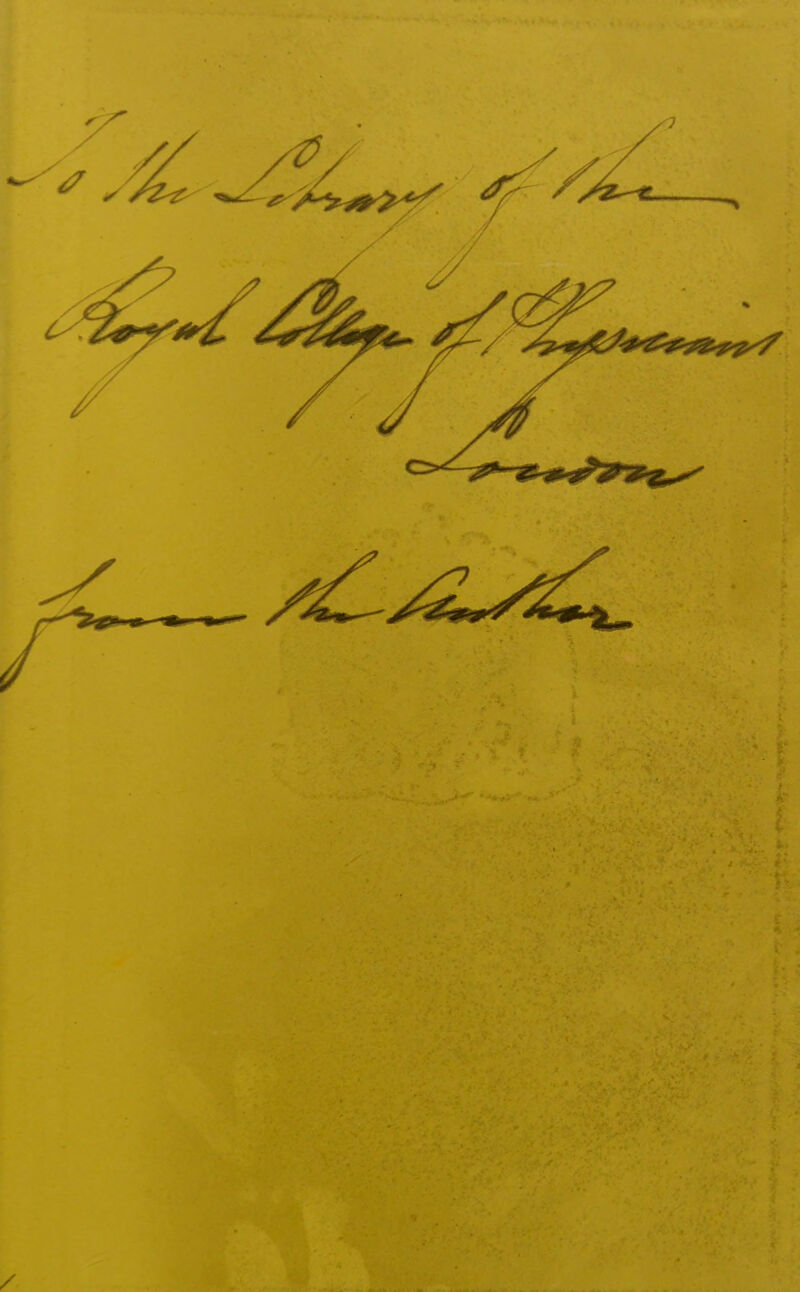 To the Library of the
Royal College of Physicians
London
from the Author